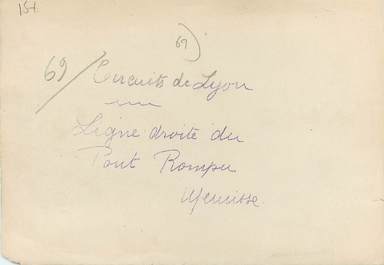 154
69
69/ Circuits de Lyon
Ligne droite du
Pont Rompu